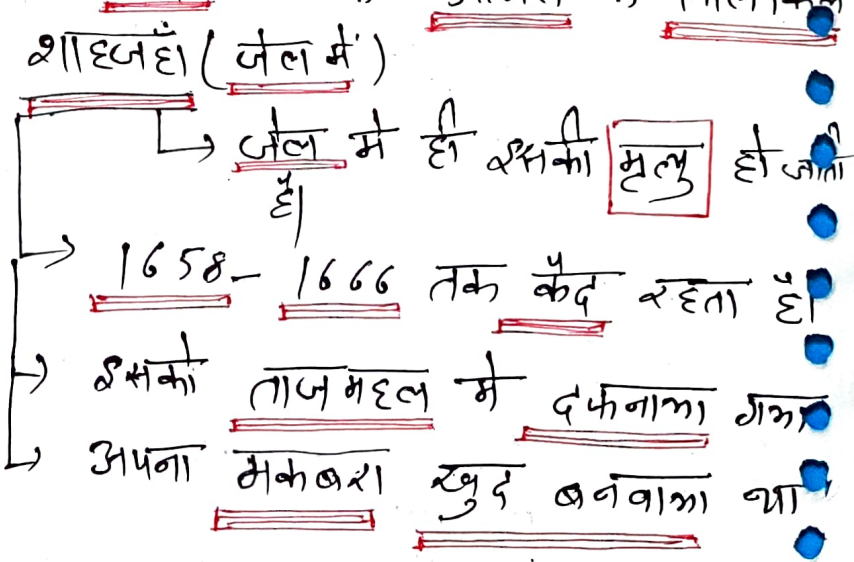 शाहजहाँ (जेल में)
जेल मे ही इसकी मृत्यु हो जाती
है।
1658- 1666 तक कैद रहता है।
इसको ताजमहल मे दफनाया गया
अपना मकबरा खुद बनवाया था